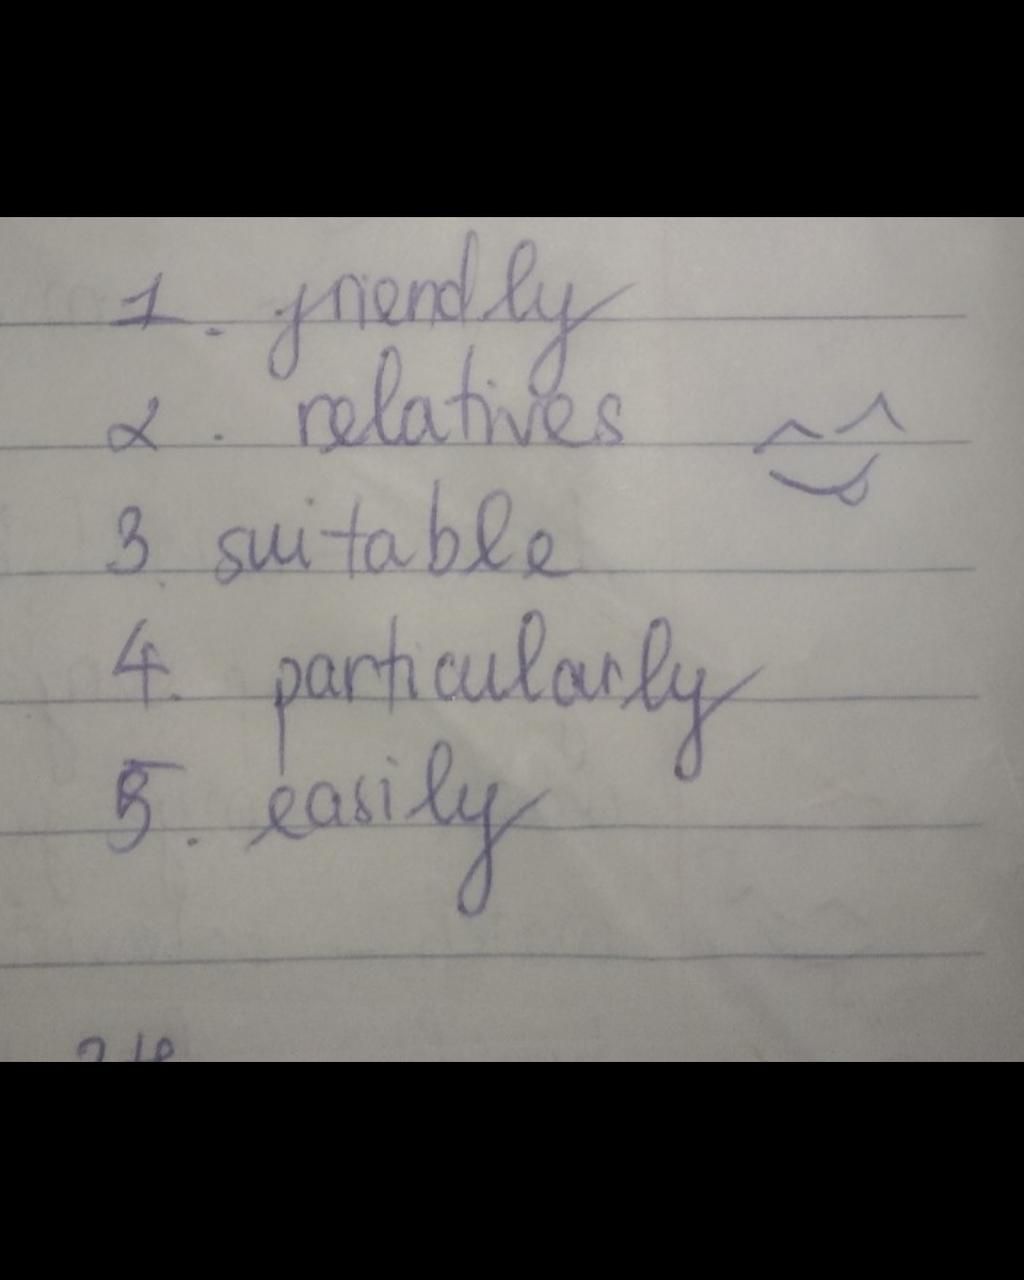 1. friendly
2. relatives
3. suitable
4. particularly
5. easily